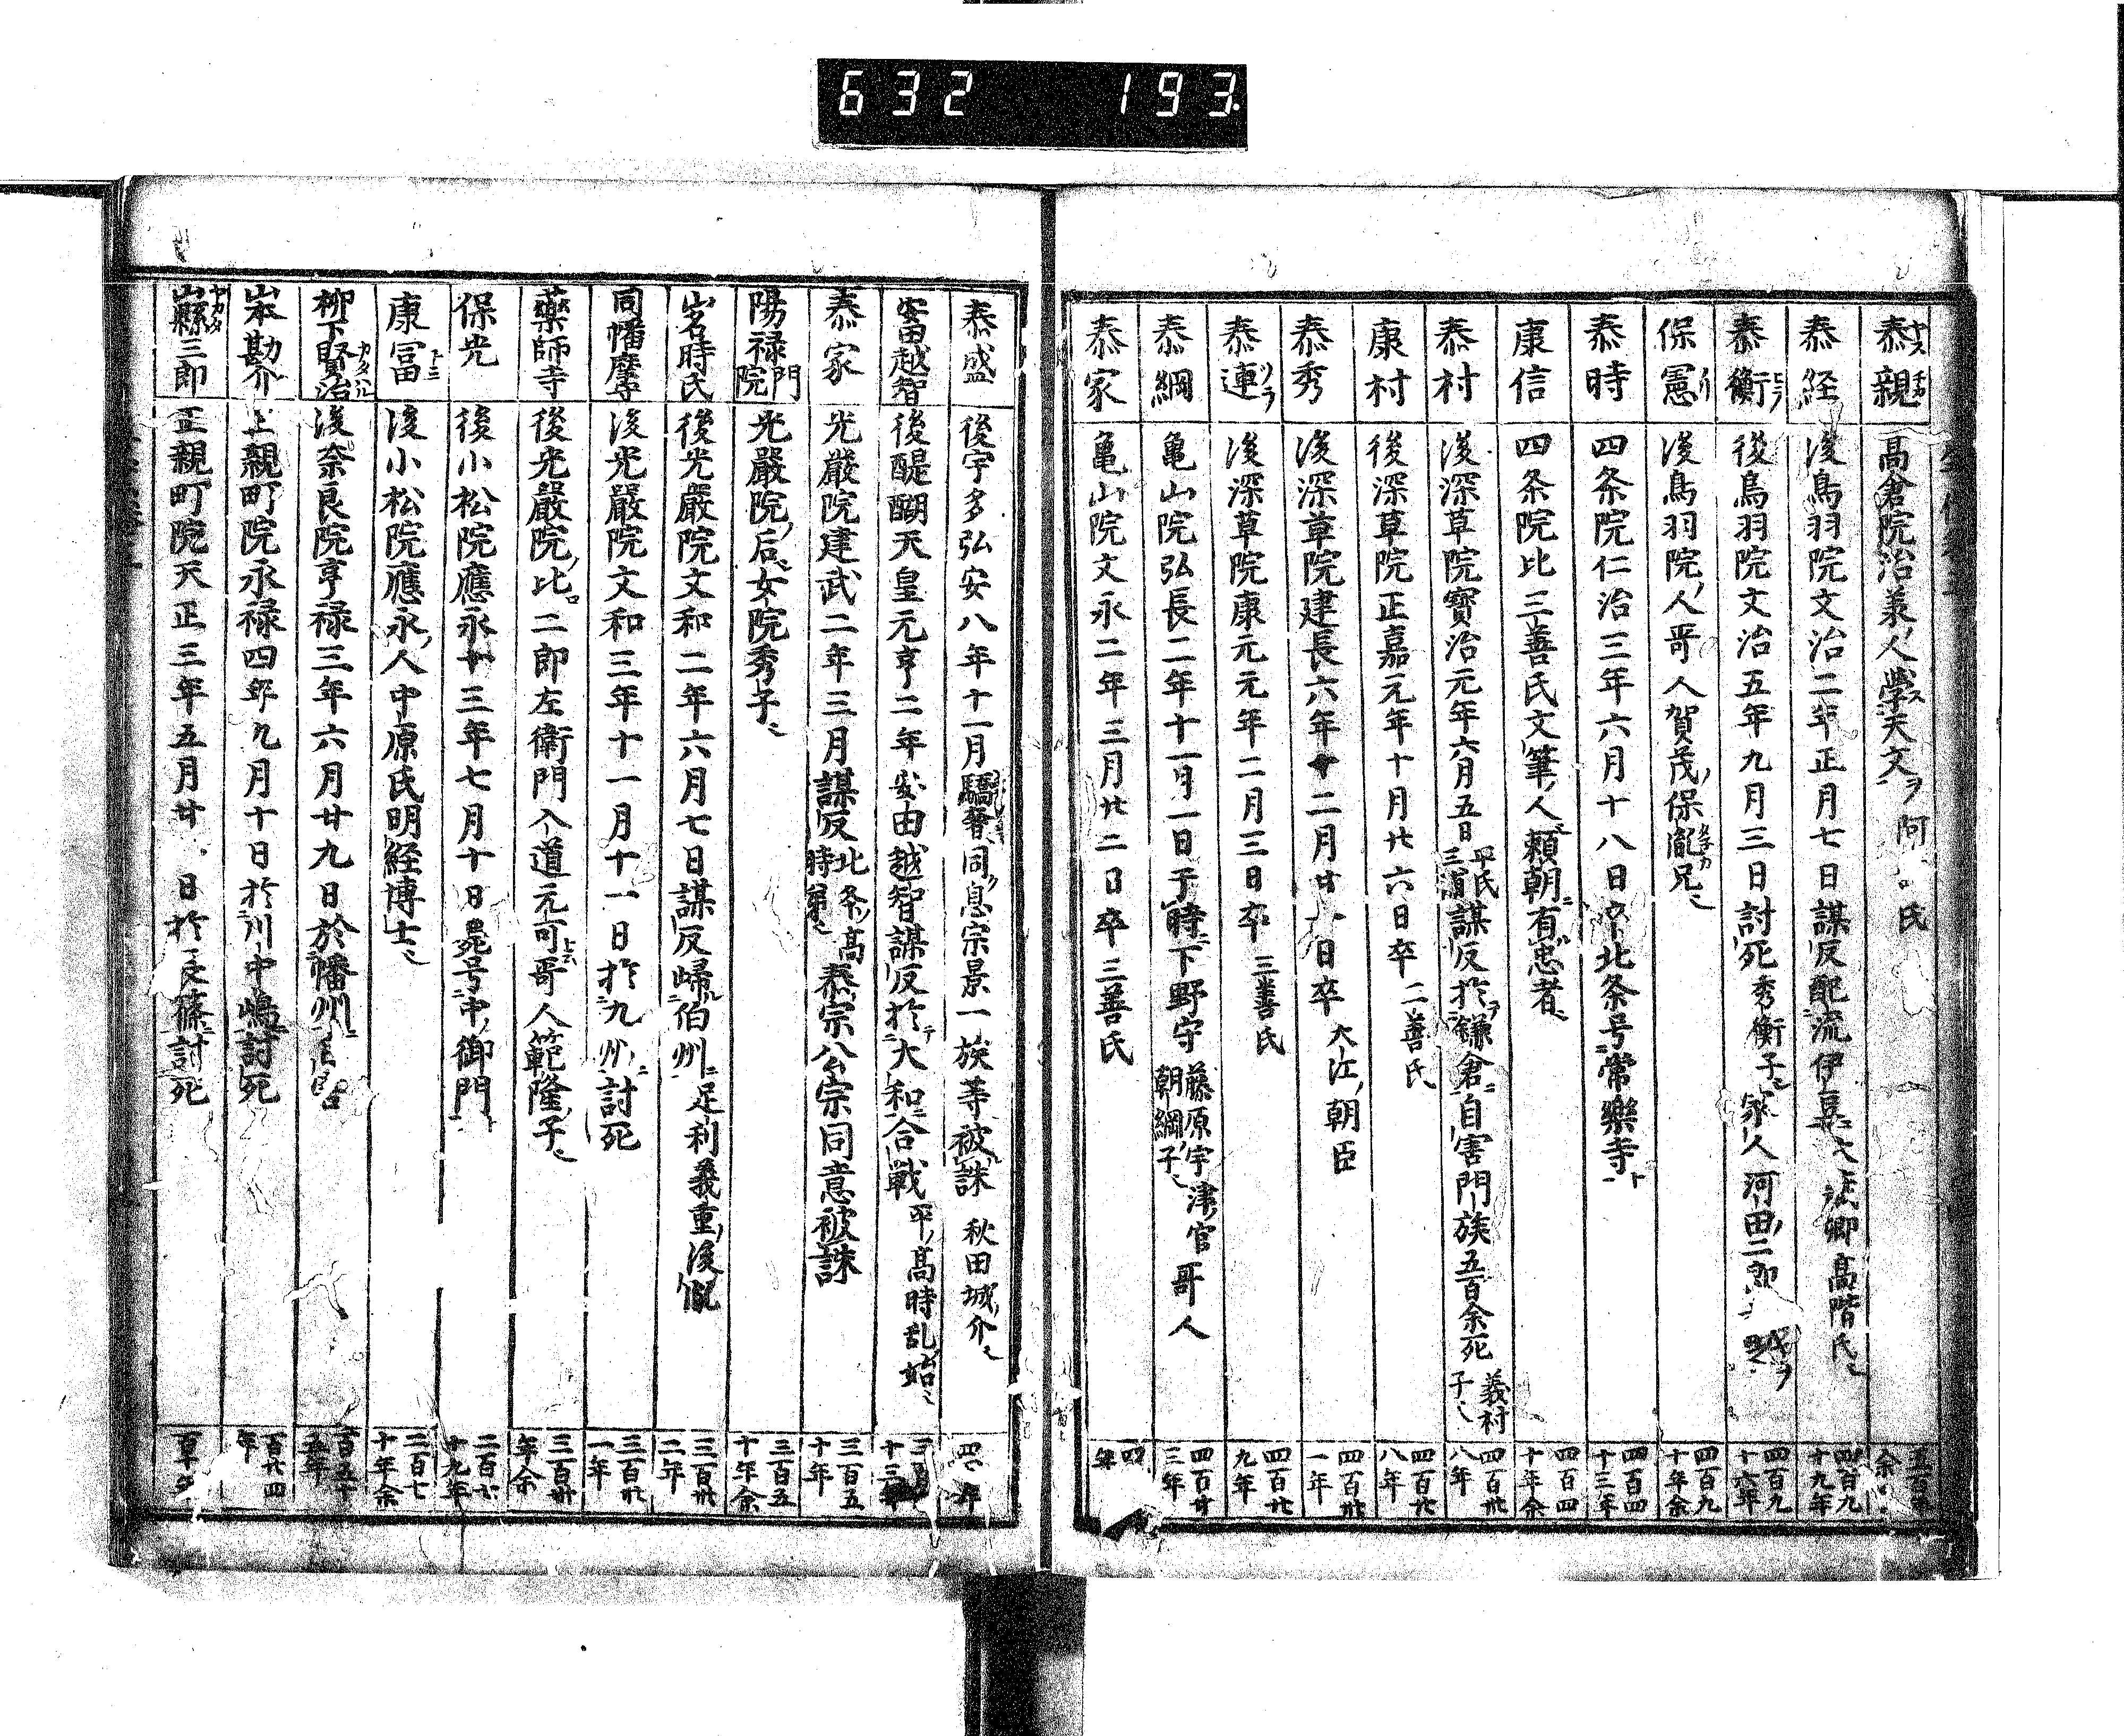 632 193
泰親 高倉院治美人学天文ヲ 阿 氏 五百
泰経 後鳥羽院文治二年正月七日謀反配流伊豆 卿高階氏 四百九十九年
泰衡 後鳥羽院文治五年九月三日討死秀衡子 家人河田二郎 四百九十六年
保憲 後鳥羽院人哥人賀茂保胤兄 四百九十年余
泰時 四条院仁治三年六月十八日卒北条号常樂寺ト 四百四十三年
康信 四条院比三善氏文筆人頼朝有忠者 四百四十年余
泰村 後深草院寶治元年六月五日平氏三浦謀反於鎌倉自害門族五百余死 義村子 四百卅八年
康村 後深草院正嘉元年十月廿六日卒 三善氏 四百廿八年
泰秀 後深草院建長六年十二月廿 日卒 大江朝臣 四百卅一年
泰連 後深草院康元元年二月三日卒 三善氏 四百廿九年
泰綱 亀山院弘長二年十一月一日于時下野守 藤原宇津官哥人 朝綱子 四百廿三年
泰家 亀山院文永二年三月廿二日卒三善氏 四 年
泰盛 後宇多弘安八年十一月驕奢同息宗景一族等被誅 秋田城介 四 年
安田越智 後醍醐天皇元亨二年安田越智謀反於大和合戦 平高時乱始
泰家 光嚴院建武二年三月謀反北条高時弟泰宗公宗同意被誅 三百五十年
陽禄門院 光嚴院后女院秀子 三百五十年余
山名時氏 後光嚴院文和二年六月七日謀反帰伯州 足利義重後胤 三百卅二年
同幡摩 後光嚴院文和三年十一月十一日於九州討死 三百卅一年
藥師寺 後光嚴院比二郎左衛門入道元可哥人範隆子 三百卅年余
保光 後小松院應永十三年七月十日薨号中御門 二百七十九年
康冨 後小松院應永人中原氏明経博士 二百七十年余
柳下賢治 後奈良院亨禄三年六月廿九日於幡州 百五十五年
山本勘介 正親町院永禄四年九月十日於川中嶋討死 百廿四年
山縣三郎 正親町院天正三年五月廿 日於長篠討死